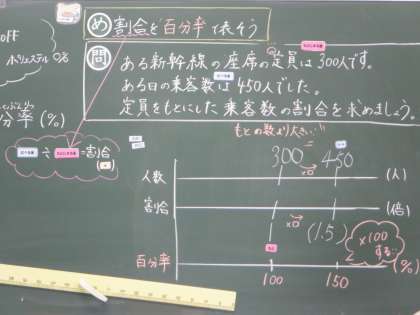 め 割合を百分率で表そう
問 ある新幹線の座席の定員は300人です。
ある日の乗客数は450人でした。
定員をもとにした乗客数の割合を求めましょう。
OFF
ポリエステル 0%
分率(%)
÷ =割合
もとの数より大きい!!
300 450
人数 (人)
割合 (倍)
(1.5)
×100
する
百分率 (%)
100 150